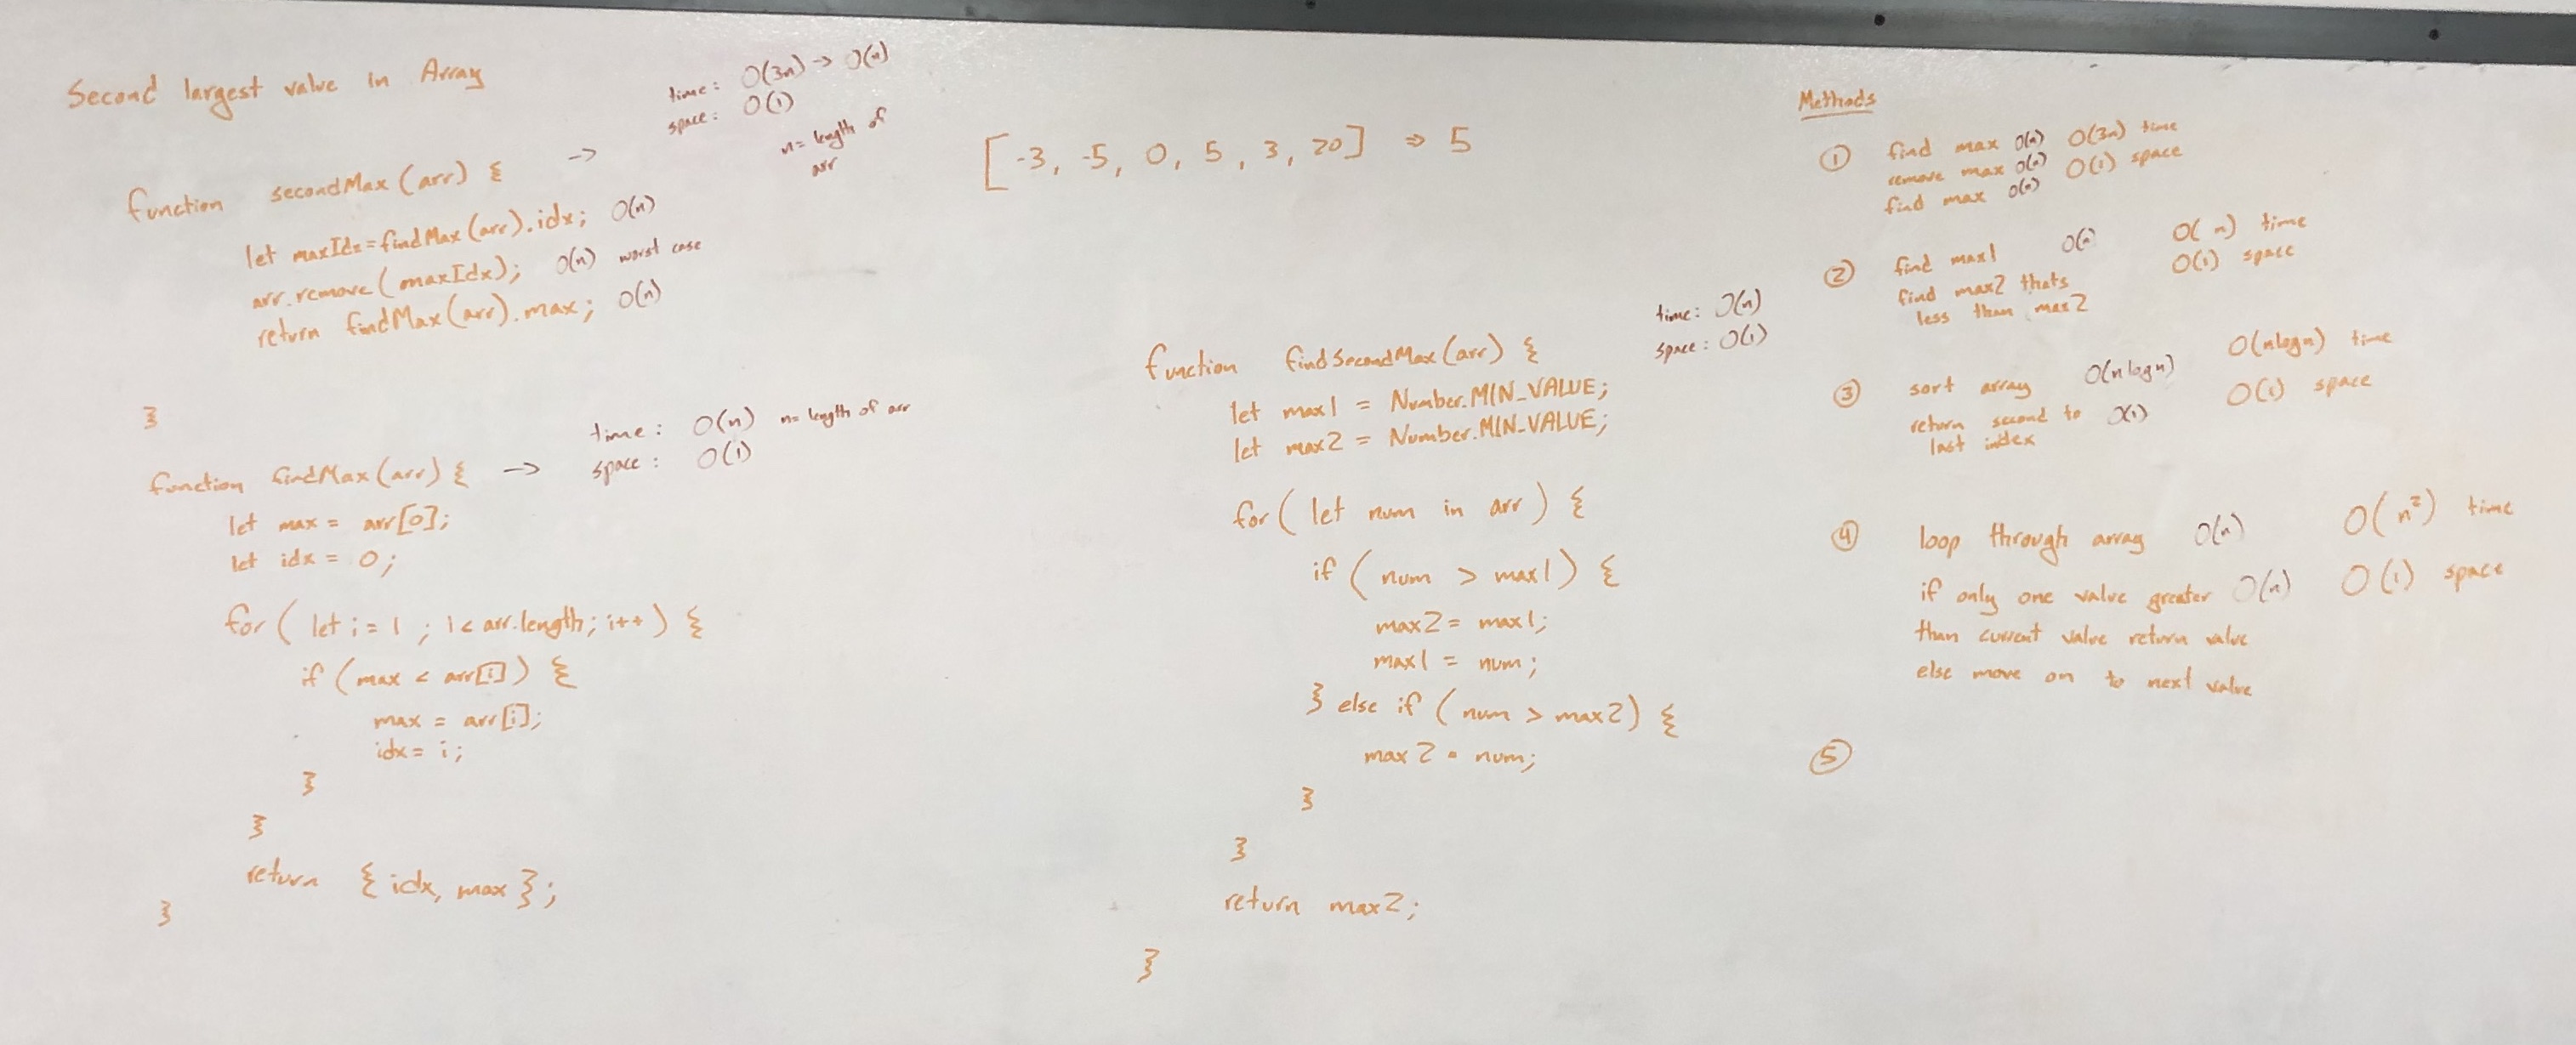 Second largest value in Array
time: O(3n) → O(n)
space: O(1)
n= length of
arr
function secondMax(arr) { →
let maxIdx=findMax(arr).idx; O(n)
arr.remove(maxIdx); O(n) worst case
return findMax(arr).max; O(n)
}
time: O(n) n= length of arr
space: O(1)
function findMax(arr) { →
let max = arr[0];
let idx = 0;
for( let i = 1 ; i < arr.length; i++ ) {
if (max < arr[i]) {
max = arr[i];
idx= i;
}
}
return { idx, max };
}
[-3, -5, 0, 5, 3, 20] ⇒ 5
time: O(n)
space: O(1)
function findSecondMax(arr) {
let max1 = Number.MIN_VALUE;
let max2 = Number.MIN_VALUE;
for( let num in arr ) {
if ( num > max1) {
max2 = max1;
max1 = num;
} else if ( num > max2) {
max2 = num;
}
}
return max2;
}
Methods
① find max O(n) O(3n) time
remove max O(n) O(1) space
find max O(n)
② find max1 O(n) O( n) time
find max2 thats O(1) space
less than max2
③ sort array O(nlogn) O(nlogn) time
return second to O(1) O(1) space
last index
④ loop through array O(n) O(n²) time
if only one value greater O(n) O(1) space
than current value return value
else move on to next value
⑤